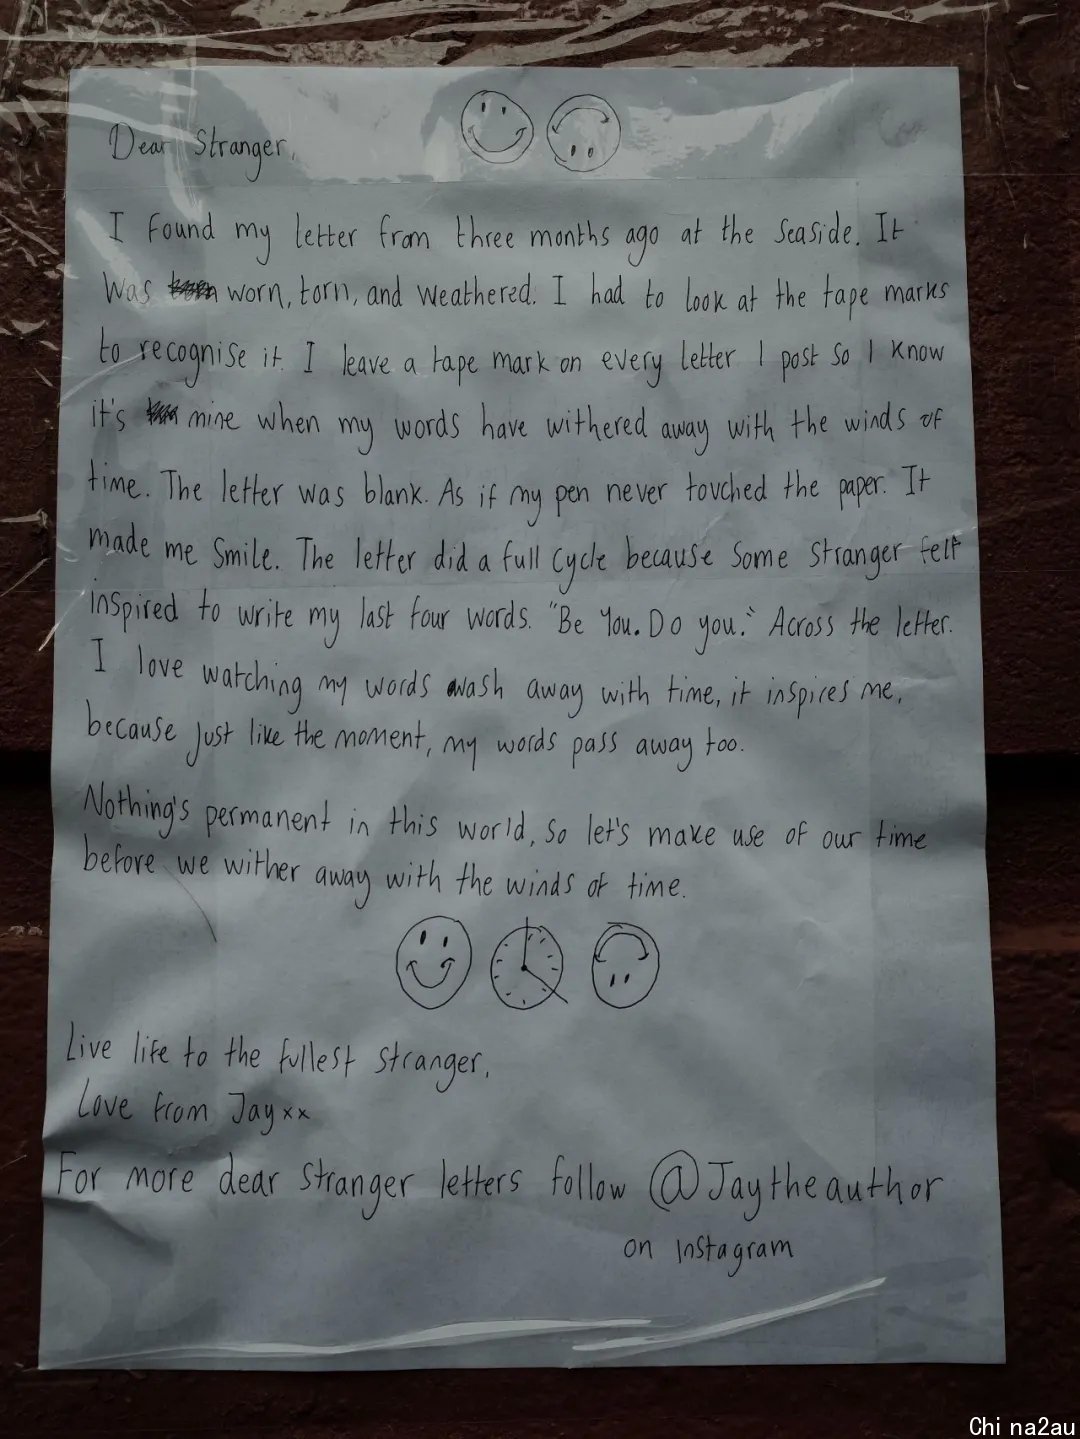 Dear Stranger,
I found my letter from three months ago at the seaside. It
was worn, torn, and weathered. I had to look at the tape marks
to recognise it. I leave a tape mark on every letter I post so I know
it's mine when my words have withered away with the winds of
time. The letter was blank. As if my pen never touched the paper. It
made me smile. The letter did a full cycle because some stranger felt
inspired to write my last four words. "Be You. Do you." Across the letter.
I love watching my words wash away with time, it inspires me,
because just like the moment, my words pass away too.
Nothing's permanent in this world, so let's make use of our time
before we wither away with the winds of time.
Live life to the fullest stranger,
Love from Jay xx
For more dear stranger letters follow @Jaytheauthor
on Instagram
Chi na2au